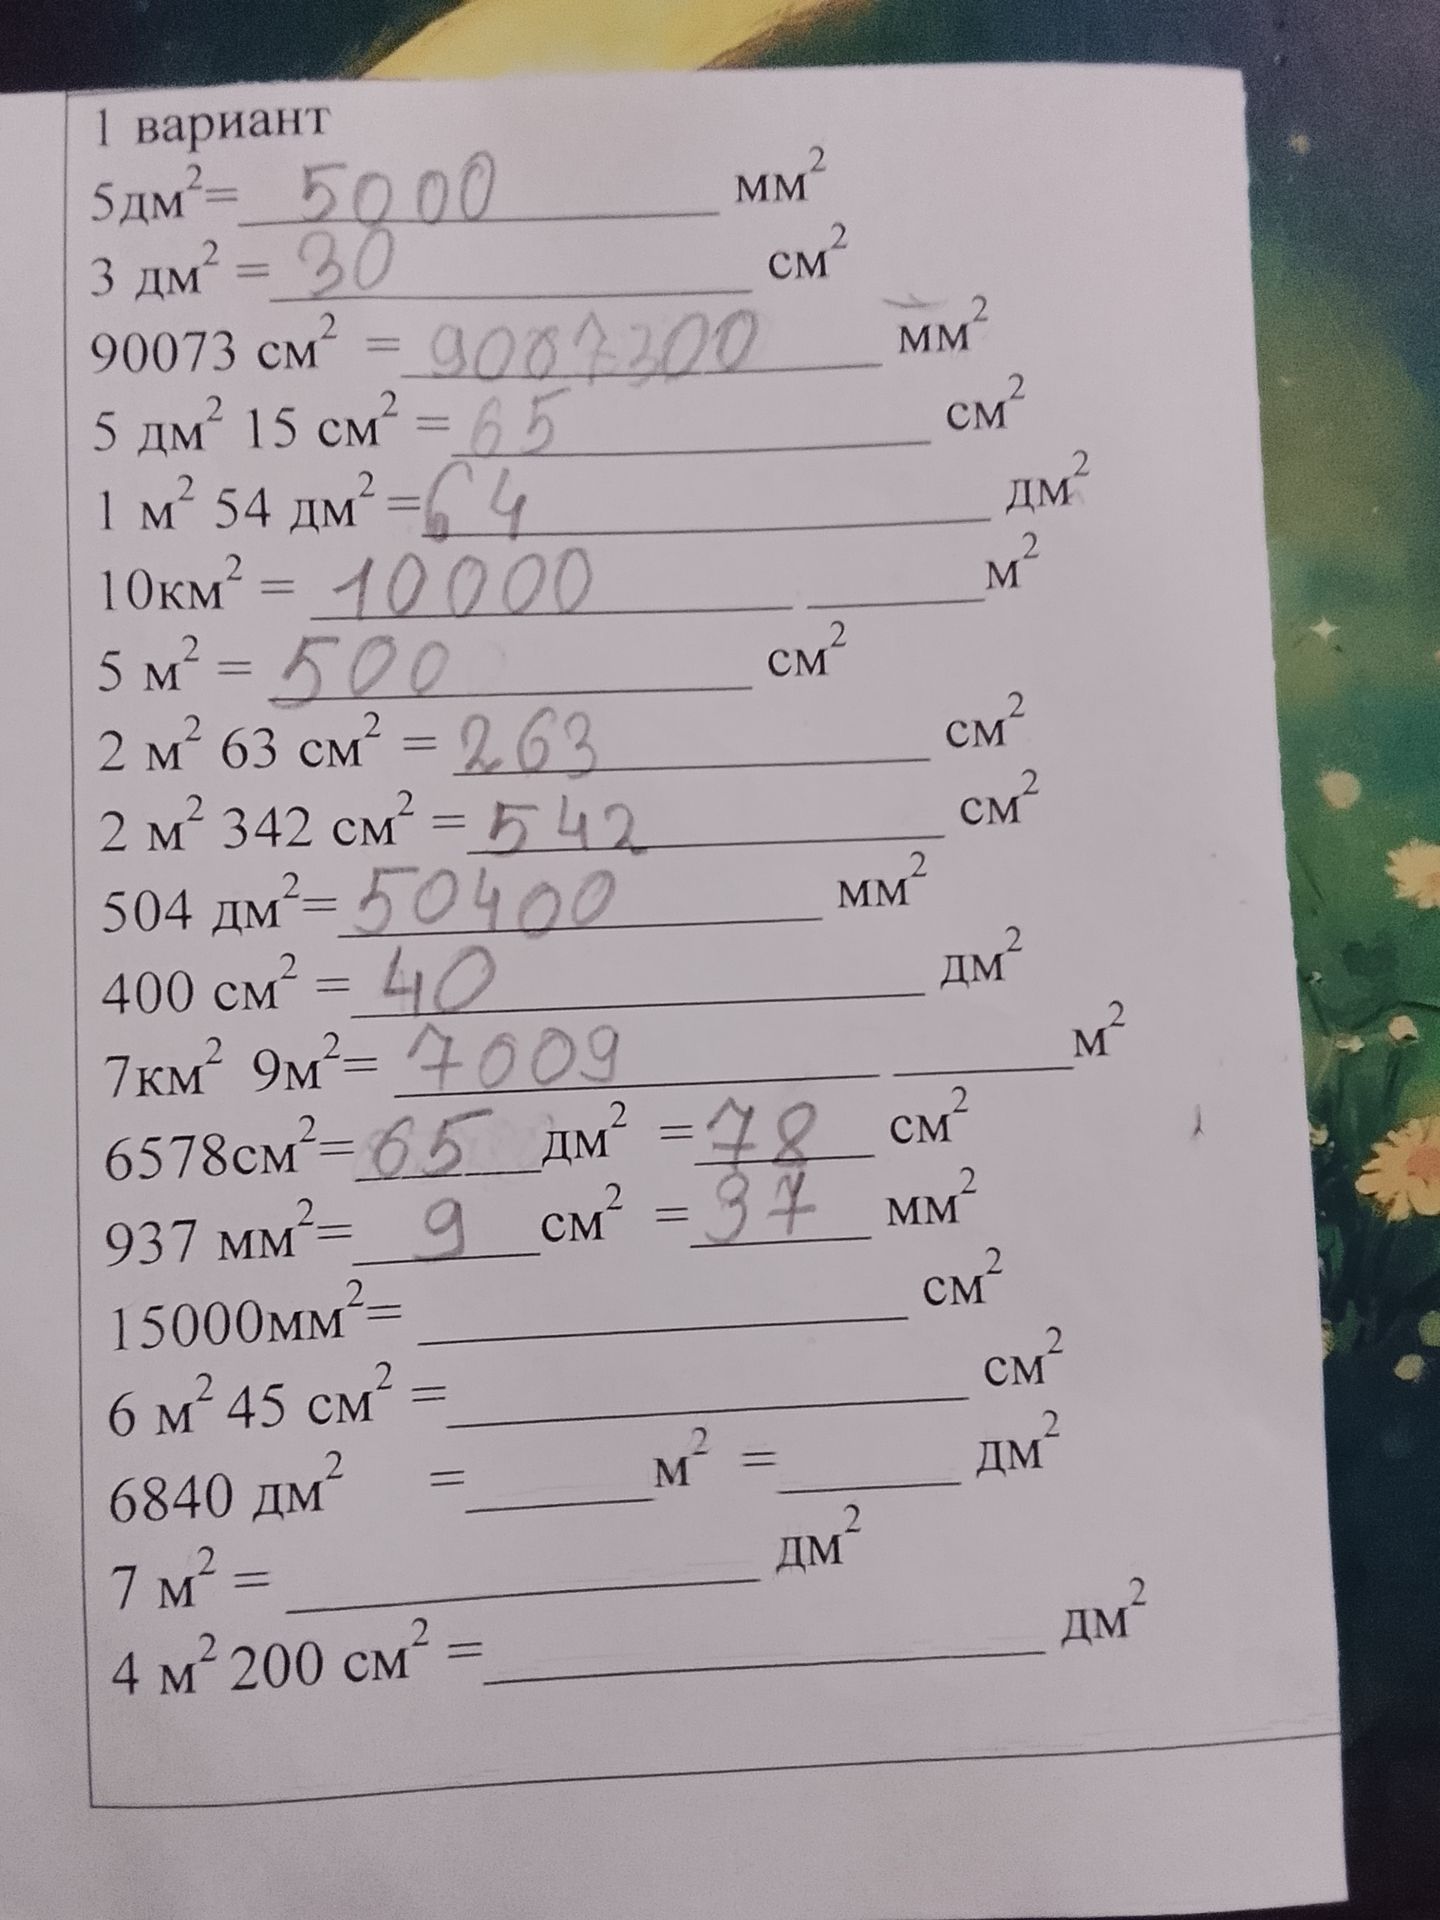 1 вариант
5дм²= 5000 мм²
3 дм² = 30 см²
90073 см² = 9007300 мм²
5 дм² 15 см² = 65 см²
1 м² 54 дм² = 64 дм²
10км² = 10000 м²
5 м² = 500 см²
2 м² 63 см² = 263 см²
2 м² 342 см² = 542 см²
504 дм²= 50400 мм²
400 см² = 40 дм²
7км² 9м²= 7009 м²
6578см²= 65 дм² = 78 см²
937 мм²= 9 см² = 37 мм²
15000мм²= ______ см²
6 м² 45 см² = ______ см²
6840 дм² = ______ м² = ______ дм²
7 м² = ______ дм²
4 м² 200 см² = ______ дм²